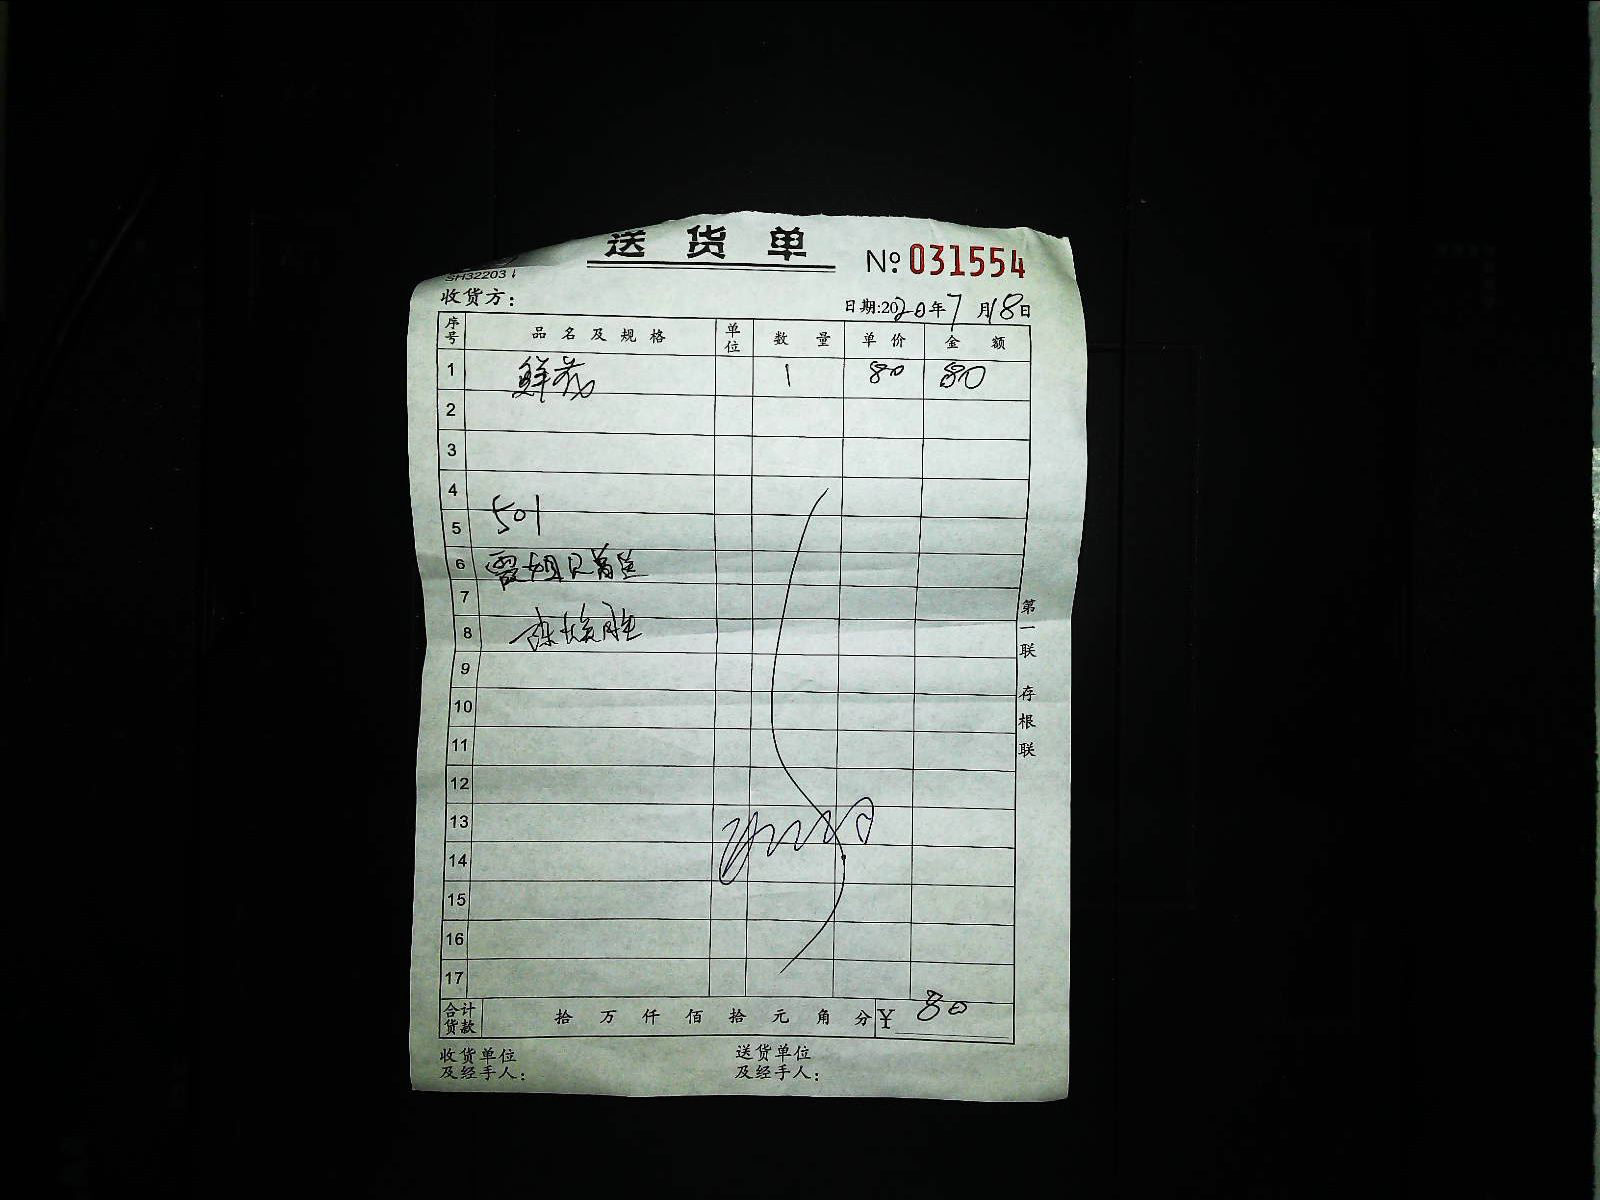 送货单
SH32203
№ 031554
收货方：
日期:2020年7月18日
序号 品名及规格 单位 数量 单价 金额
1 鲜花 1 80 80
2
3
4
5 501
6 霞姐
7
8
9
10
11
12
13
14
15
16
17
合计货款 拾 万 仟 佰 拾 元 角 分 ¥ 80
收货单位 送货单位
及经手人： 及经手人：
第一联 存根联